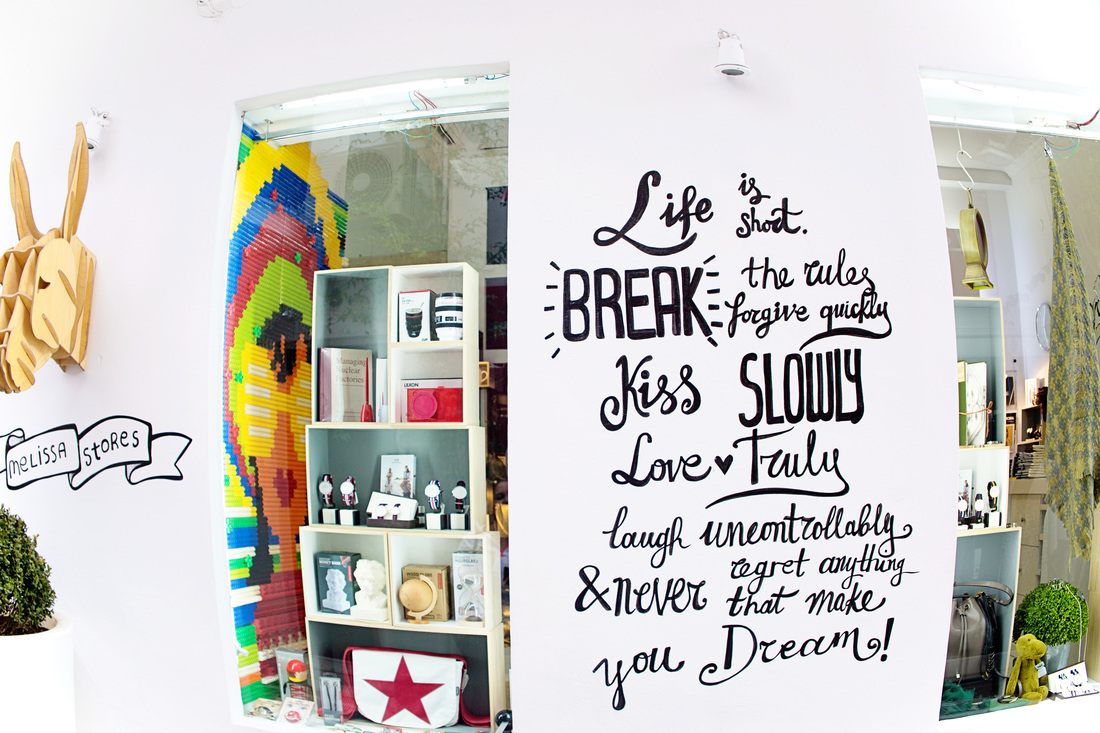 MELISSA STORES
Managing
Nuclear
Factories
LEXON
Life is
short.
BREAK the rules
forgive quickly
Kiss SLOWLY
Love Truly
laugh uncontrollably
& never regret anything
that make
you Dream!